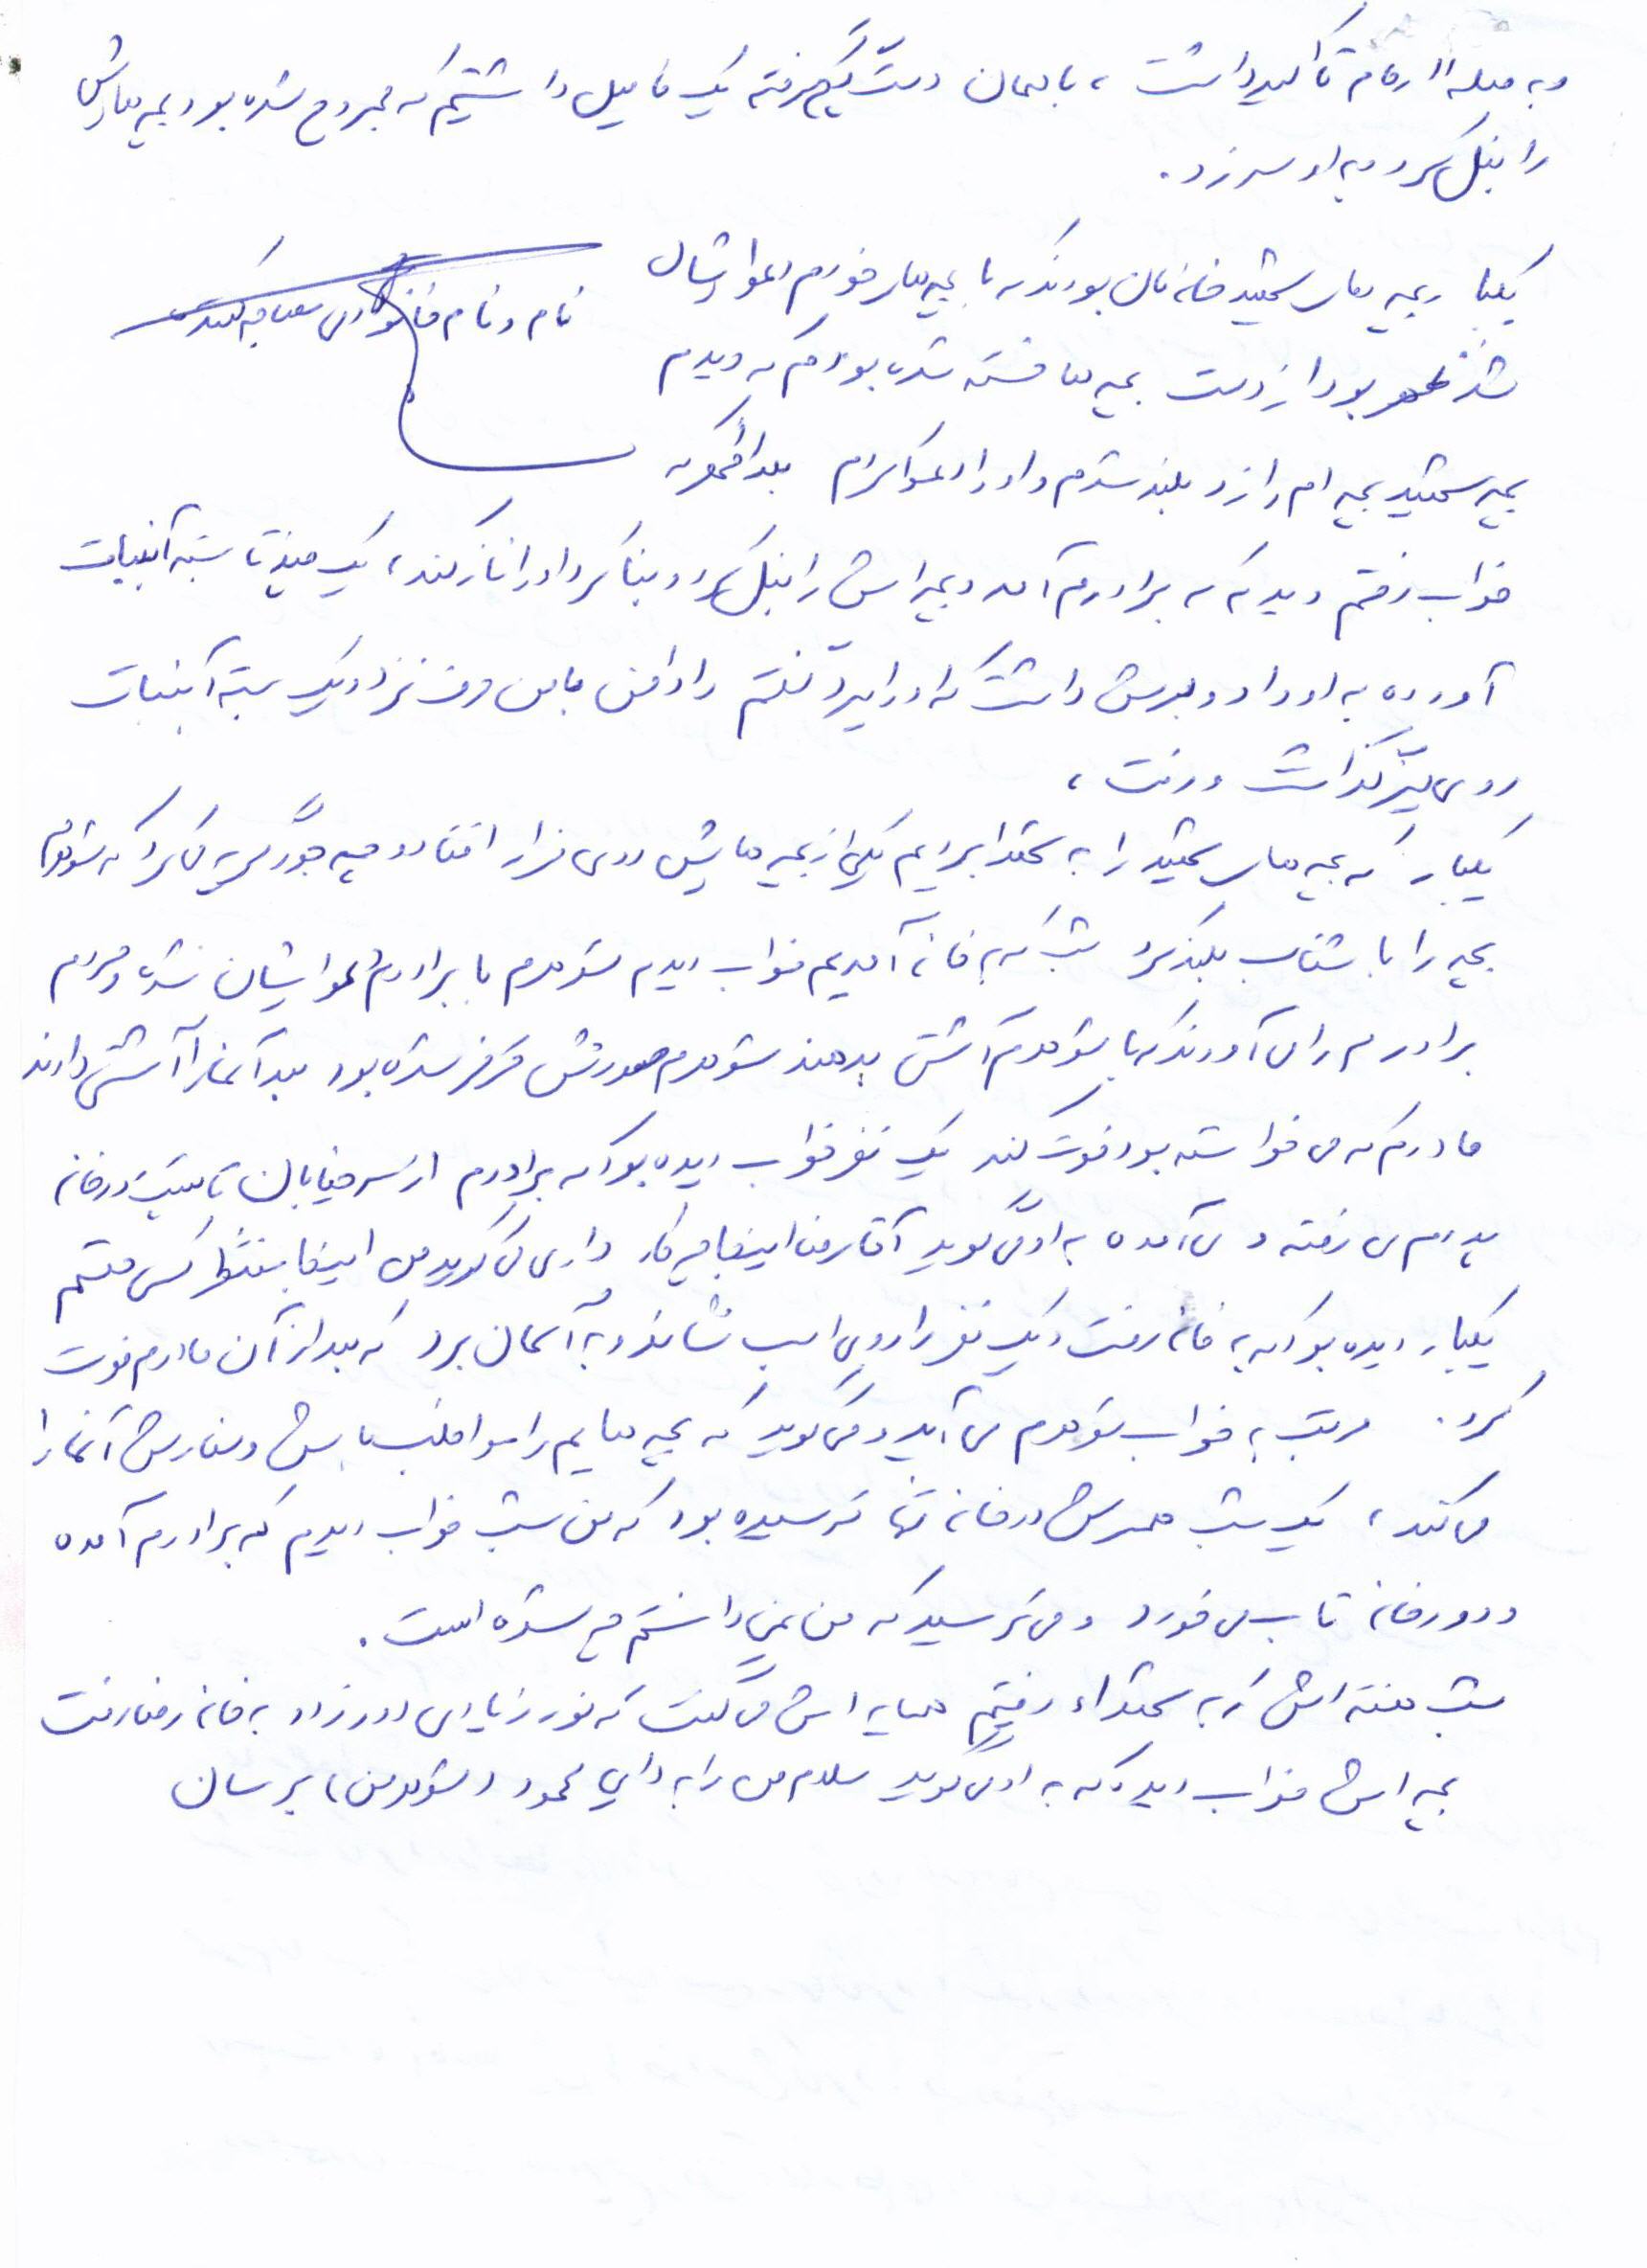 و به صله ارحام تأکید داشت، با همان دست گچ گرفته یک فامیل داشتیم که مجروح شده بود بچه هایش
را بغل کرد و به او سر زد.
یکبار بچه های شهید خانه مان بودند که با بچه های خودم دعوایشان
نام و نام خانوادگی مصاحبه کننده
شد ظهر بود از دست بچه ها خسته شده بودم که دیدم
بچه شهید بچه ام را زد بلند شدم و او را دعوا کردم بعد از ظهر که
خواب رفتم دیدم که برادرم آمد و بچه اش را بغل کرد و بنا کرد او را ناز کند، یک بسته آبنبات
آورده به او داد و برش داشت که او را ببرد گفتم داداش با من حرف نزد و یک بسته آبنبات
روی میز گذاشت و رفت،
یکبار که بچه های شهید را به شهدا بردیم یکی از بچه هایش روی مزار افتاد و چه جور گریه می کرد که شوهرم
بچه را با شتاب بلند کرد شب که به خانه آمدیم خواب دیدم شوهرم با برادرم دعوایشان شده و مردم
برادرم را می آوردند که با شوهرم آشتی بدهند شوهرم صورتش قرمز شده بود بعد آنها را آشتی دادند
مادرم که می خواسته بود فوت کند یک نفر خواب دیده بود که برادرم از سر خیابان تا پشت در خانه
پدرم می رفته و می آمده به او می گوید آقا رضا اینجا چه کار داری می گوید من اینجا منتظر کسی هستم
یکبار دیده بود که به خانه رفت و یک نفر را روی اسب نشاند و به آسمان برد که بعد از آن مادرم فوت
کرد. مرتب به خواب شوهرم می آید و می گوید که بچه هایم را مواظب باش و سفارش آنها را
می کند، یک شب همسرش در خانه تنها ترسیده بود که من شب خواب دیدم که برادرم آمده
و دور خانه تاب می خورد و می ترسید که من نمی دانستم چه شده است.
شب هفته اش که به شهداء رفتیم همسایه اش می گفت که نور زیادی دور زد و به خانه رضا رفت
بچه اش خواب دیده که به او می گوید سلام من را به دایی محمود (شوهر من) برسان